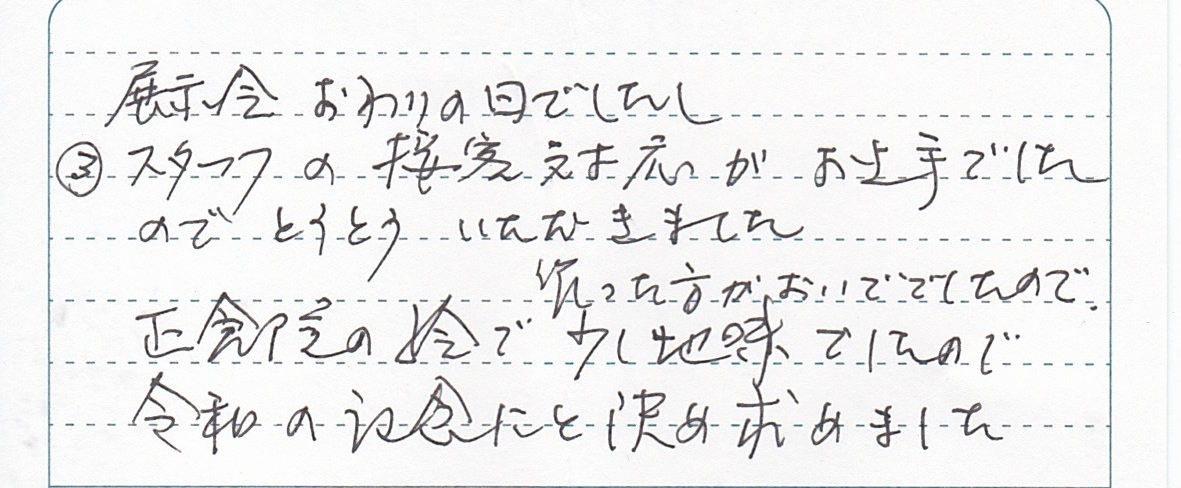 展示会 おわりの日でしたし
③ スタッフの 接客対応が お上手でした
のでとうとう いただきました
作った方がおいででしたので、
正倉院の絵で 少し地味でしたので
令和の記念にと決め求めました